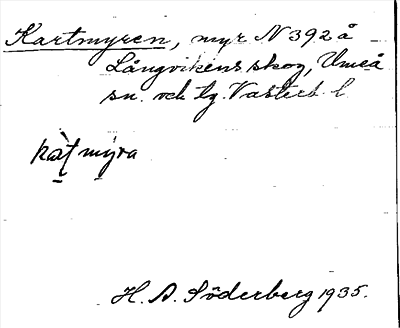 Kartmyren, myr N 392 å
Långvikens skog, Umeå
sn. och tg. Västerb. l
kat mýra
H. D. Söderberg 1935.